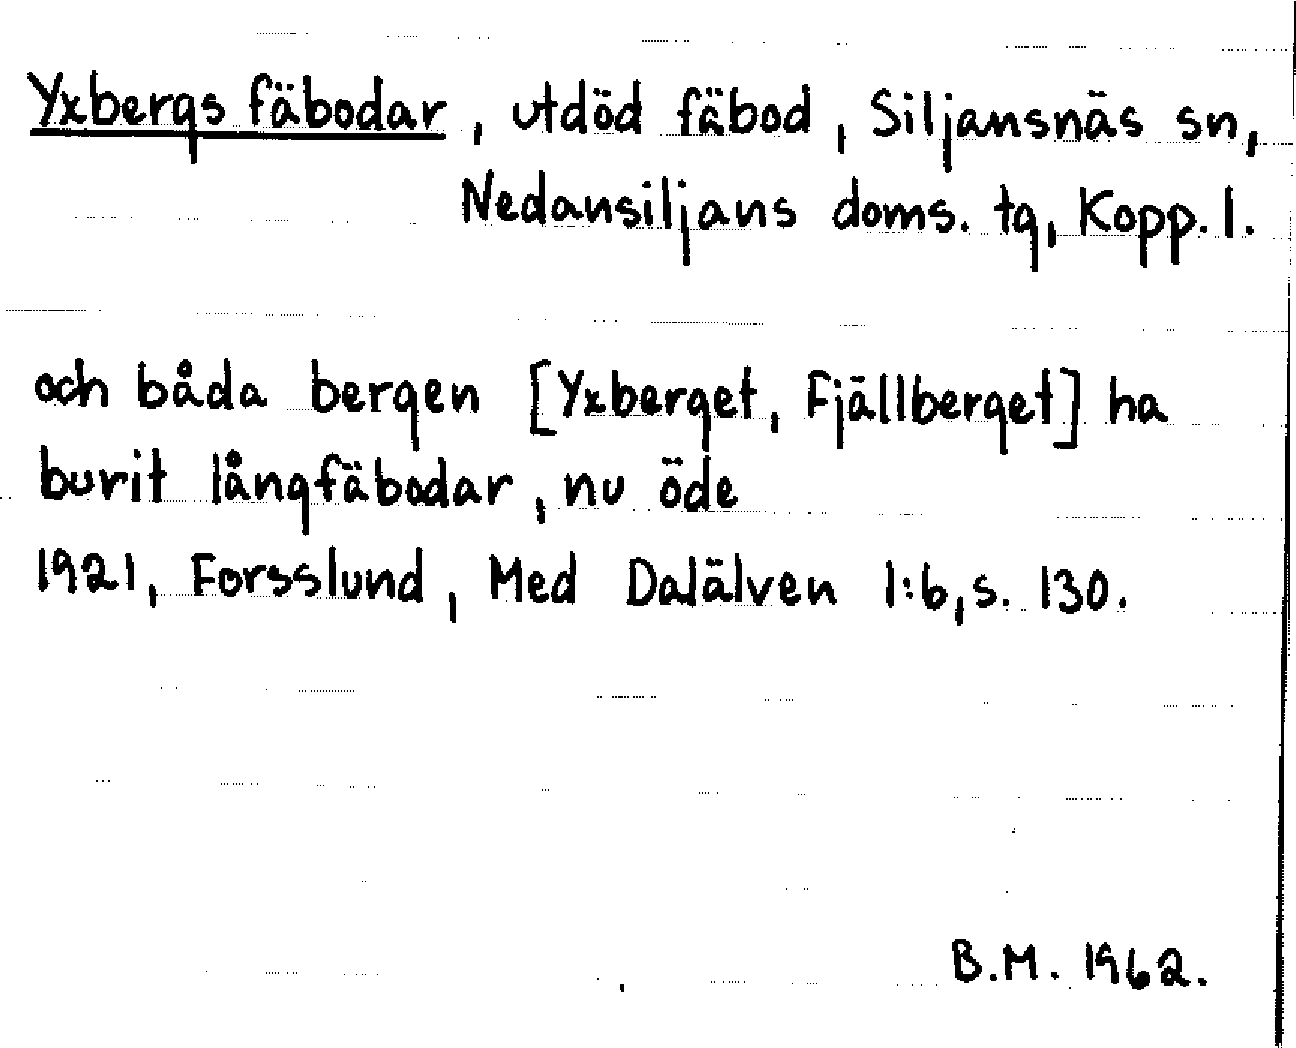 Yxbergs fäbodar, utdöd fäbod, Siljansnäs sn,
Nedansiljans doms. tg, Kopp. l.
och båda bergen [Yxberget, Fjällberget] ha
burit långfäbodar, nu öde
1921, Forsslund, Med Dalälven 1:6, s. 130.
B.M. 1962.